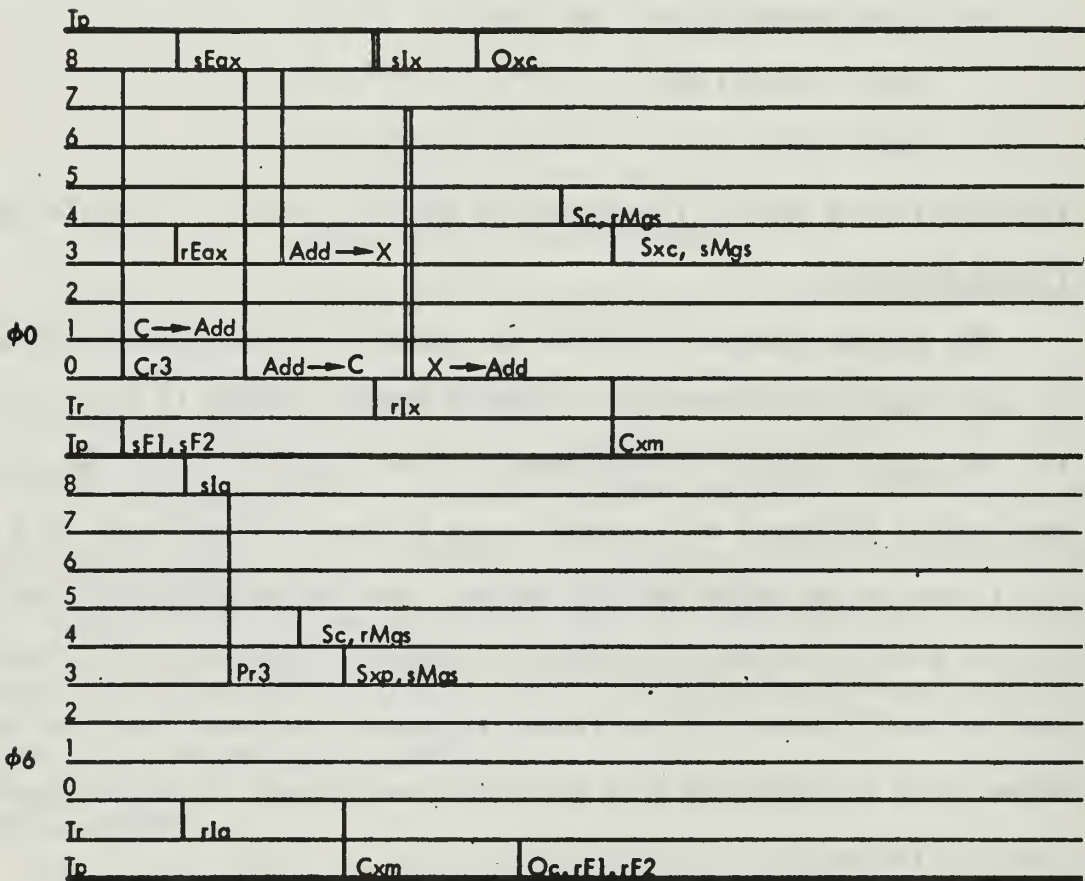 Tp
8 sEax sIx Oxc
7
6
5
4 Sc, rMgs
3 rEax Add → X Sxc, sMgs
2
φ0 1 C → Add
0 Cr3 Add → C X → Add
Tr rIx
Tp sF1, sF2 Cxm
8 sIa
7
6
5
4 Sc, rMgs
3 Pr3 Sxp, sMgs
2
φ6 1
0
Tr rIa
Tp Cxm Oc, rF1, rF2